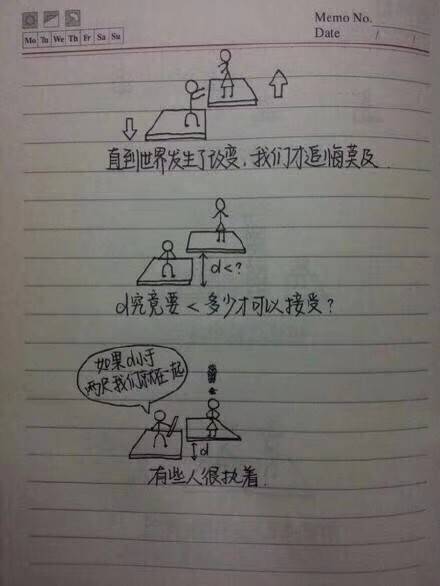 Memo No.
Mo Tu We Th Fr Sa Su
Date / /
直到世界发生了改变，我们才追悔莫及
d<?
d究竟要<多少才可以接受？
如果d小于
两尺我们就在一起
d
有些人很执着